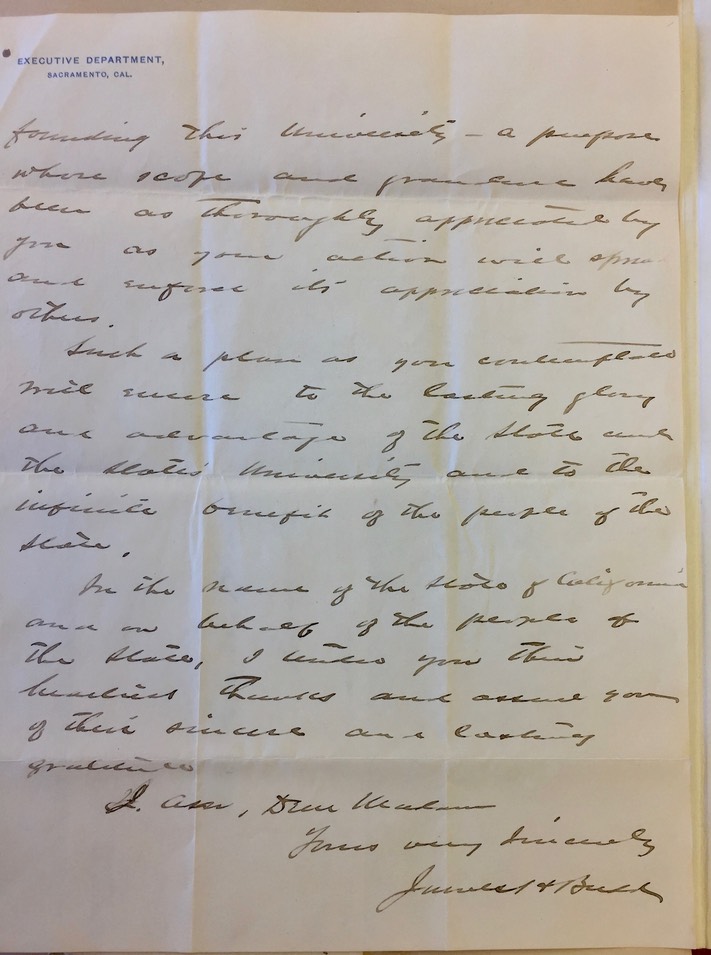 EXECUTIVE DEPARTMENT,
SACRAMENTO, CAL.
founding this University – a purpose
whose scope and grandeur have
been as thoroughly appreciated by
you as your action will
and enforce its appreciation by
others.
Such a plan as you contemplate
will enure to the lasting glory
and advantage of the State and
the State's University and to the
infinite benefit of the people of the
State.
In the name of the State of California
and on behalf of the people of
the State, I tender you their
heartiest thanks and assure you
of their sincere and lasting
gratitude
I am, Dear Madam
Yours very sincerely
James H Budd